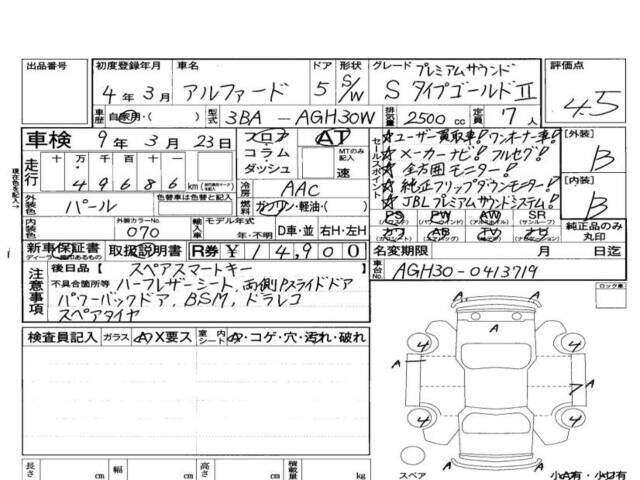 出品番号
初度登録年月 4年3月
車名 アルファード
ドア 5
形状 S/W
グレード プレミアムサウンド
S タイプゴールドⅡ
評価点 4.5
車歴 自家用・( )
型式 3BA-AGH30W
排気量 2500 cc
定員 7人
車検 9年3月23日
走行 十万 万 千 百 十
49686 km
外装色 パール
色替車は色替と記入
外装カラーNo. 070
シフト フロア・コラム・ダッシュ
AT
MTのみ記入
速
冷房 AAC
燃料 ガソリン・軽油・( )
輸入車 モデル年式
年・不明
D車・並 右H・左H
セールスポイント
☆ユーザー買取車! ワンオーナー車!
☆メーカーナビ! フルセグ!
☆全方囲モニター!
☆純正フリップダウンモニター!
☆JBLプレミアムサウンドシステム!
PS PW AW SR
カワ AB TV ナビ
純正品のみ丸印
[外装] B
[内装] B
新車保証書
取扱説明書
R券 ¥14,900
名変期限 月 日迄
車台No. AGH30-0413719
注意事項
後日品【スペアスマートキー
不具合箇所等 ハーフレザーシート、両側Pスライドドア
パワーバックドア、BSM、ドラレコ
スペアタイヤ
検査員記入
ガラス A・X要ス
室内シート A・コゲ・穴・汚れ・破れ
ロック車
A
A
4
4
A
A
7
4
4
A
スペア
小A有・小U有
長さ cm
幅 cm
高さ cm
積載量 kg
現在色を記入→